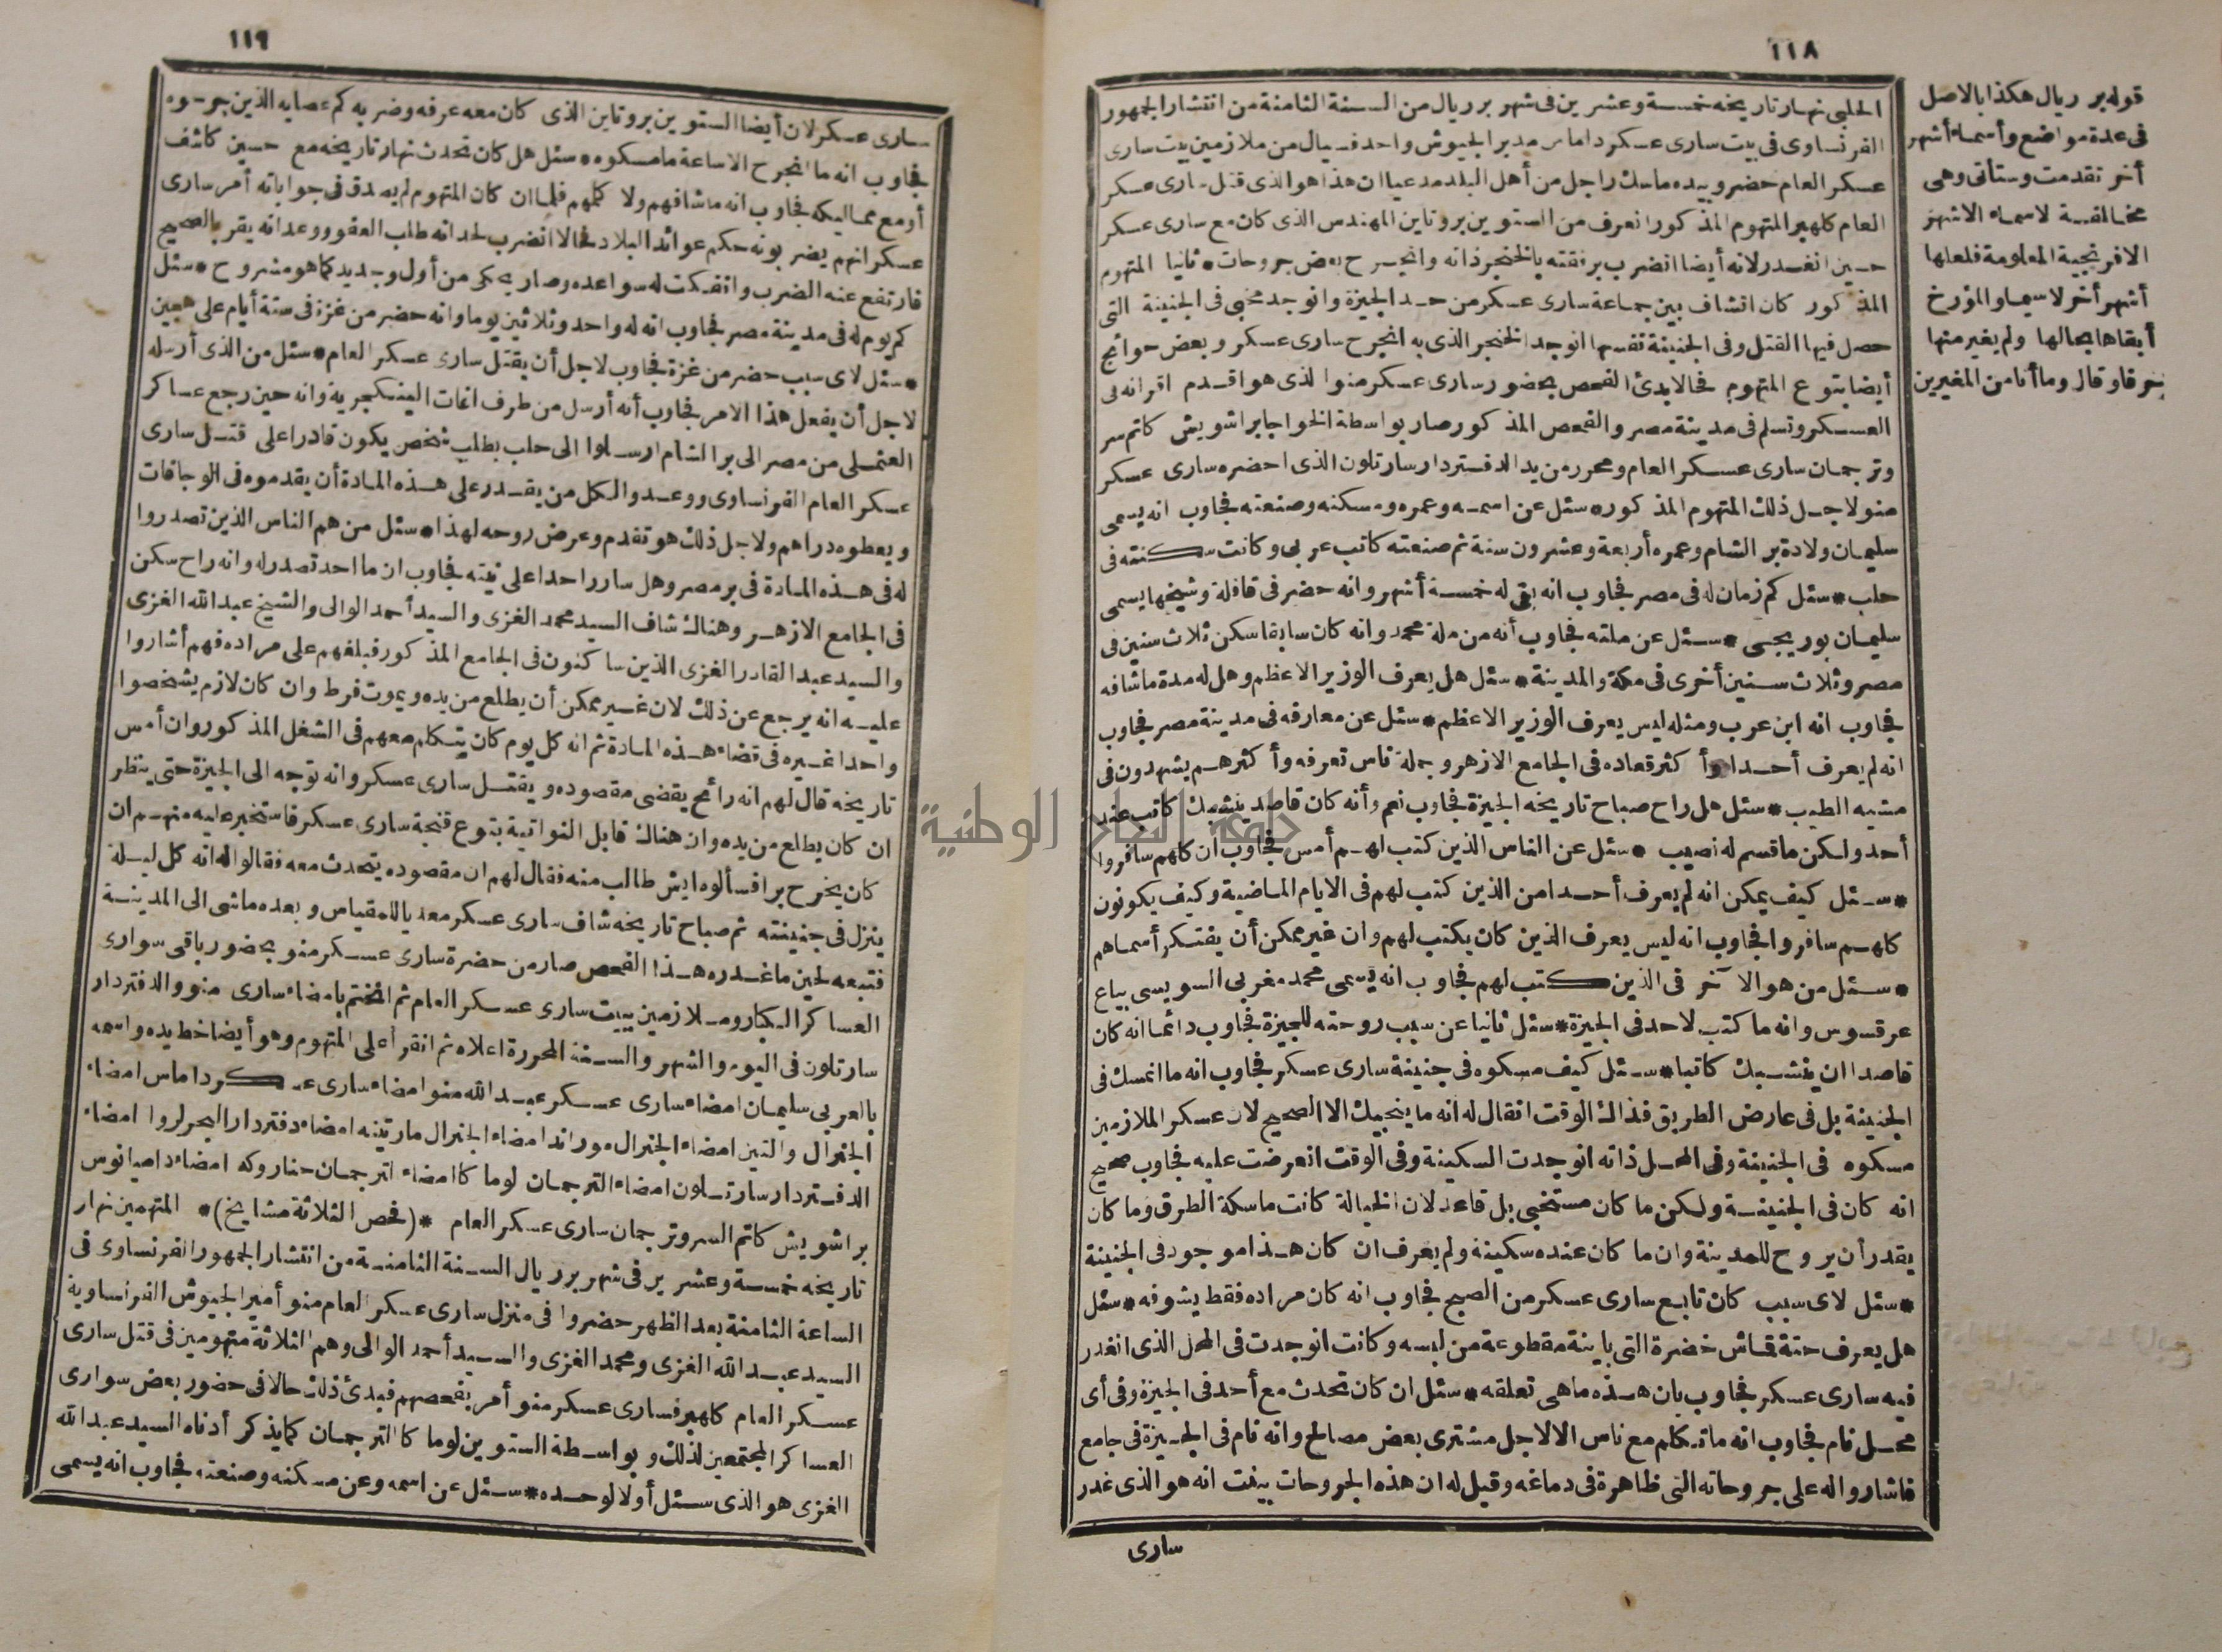 ١١٨
الحلبى نهار تاريخه خمسة وعشرين فى شهر برريال من السنة الثامنة من انتشار الجمهور
الفرنساوى فى بيت سارى عسكر داماس مدبر الجيوش واحد فسيال من ملازمين بيت سارى
عسكر العام حضر وبيده ماسك راجل من أهل البلد مدعيا ان هذا هو الذى قتل سارى عسكر
العام كلهبر المتهوم المذكور انعرف من الستوين بروتاين المهندس الذى كان مع سارى عسكر
حين انغدر لانه أيضا انضرب برفقته بالخنجر ذاته وانجرح بعض جروحات * ثانيا المتهوم
المذكور كان اتشاف بين جماعة سارى عسكر من حد الجيزة وانوجد مخبى فى الجنينة التى
حصل فيها القتل وفى الجنينة نفسها انوجد الخنجر الذى به انجرح سارى عسكر وبعض حوائج
أيضا بتوع المتهوم فحالا بدئ الفحص بحضور سارى عسكر منوا لذى هو اقدم اقرانه فى
العسكر وتسلم فى مدينة مصر والفحص المذكور صار بواسطة الخواجا براشويش كاتم سر
وترجمان سارى عسكر العام ومحرر من يد الدفتردار سارتلون الذى احضره سارى عسكر
منو لاجل ذلك المتهوم المذكور * سئل عن اسمه وعمره ومسكنه وصنعته فجاوب انه يسمى
سليمان ولادة بر الشام وعمره أربعة وعشرون سنة ثم صنعته كاتب عربى وكانت سكنته فى
حلب * سئل كم زمان له فى مصر فجاوب انه بقى له خمسة أشهر وانه حضر فى قافلة وشيخها يسمى
سليمان بوريجى * سئل عن ملته فجاوب أنه من ملة محمد وانه كان سابقا سكن ثلاث سنين فى
مصر وثلاث سنين أخرى فى مكة والمدينة * سئل هل يعرف الوزير الاعظم وهل له مدة ما شافه
فجاوب انه ابن عرب ومثله ليس يعرف الوزير الاعظم * سئل عن معارفه فى مدينة مصر فجاوب
انه لم يعرف أحدا وأكثر قعاده فى الجامع الازهر وجملة ناس تعرفه وأكثرهم يشهدون فى
مشيه الطيب * سئل هل راح صباح تاريخه الجيزة فجاوب نعم وأنه كان قاصد ينشبك كاتب عند
أحد ولكن ما قسم له نصيب * سئل عن الناس الذين كتب لهم أمس فجاوب ان كلهم سافروا
* سئل كيف يمكن انه لم يعرف أحدا من الذين كتب لهم فى الايام الماضية وكيف يكونون
كلهم سافروا فجاوب انه ليس يعرف الذين كان يكتب لهم وان غير ممكن أن يفتكر أسماهم
* سئل من هو الآخر فى الذين كتب لهم فجاوب انه يسمى محمد مغربى السويسى بياع
عرقسوس وانه ما كتب لاحد فى الجيزة * سئل ثانيا عن سبب روحته للجيزة فجاوب دائما انه كان
قاصدا ان ينشبك كاتبا * سئل كيف مسكوه فى جنينة سارى عسكر فجاوب انه ما انمسك فى
الجنينة بل فى عارض الطريق فذاك الوقت انقال له انه ما ينجيك الا الصحيح لان عسكر الملازمين
مسكوه فى الجنينة وفى المحل ذاته انوجدت السكينة وفى الوقت انعرضت عليه فجاوب صحيح
انه كان فى الجنينة ولكن ما كان مستخبى بل قاعد لان الخيالة كانت ماسكة الطرق وما كان
يقدر أن يروح للمدينة وان ما كان عنده سكينة ولم يعرف ان كان هذا موجود فى الجنينة
* سئل لاى سبب كان تابع سارى عسكر من الصبح فجاوب انه كان مراده فقط يشوفه * سئل
هل يعرف حتة قماش خضرة التى باينة مقطوعة من لبسه وكانت انوجدت فى المحل الذى انغدر
فيه سارى عسكر فجاوب بان هذه ما هى تعلقه * سئل ان كان تحدث مع أحد فى الجيزة وفى أى
محل نام فجاوب انه ما تكلم مع ناس الا لاجل مشترى بعض مصالح وانه نام فى الجيزة فى جامع
فاشاروا له على جروحاته التى ظاهرة فى دماغه وقيل له ان هذه الجروحات بينت انه هو الذى غدر
سارى
قوله برريال هكذا بالاصل
فى عدة مواضع وأسماء أشهر
أخر تقدمت وستأتى وهى
مخالفة لاسماء الاشهر
الافرنجية المعلومة فلعلها
أشهر أخر لاسيما والمؤرخ
أبقاها بحالها ولم يغير منها
حرفا وقال وما أنا من المغيرين
١١٩
سارى عسكر لان أيضا الستوين بروتاين الذى كان معه عرفه وضربه كم عصايه الذين جرحوه
فجاوب انه ما انجرح الا ساعة ما مسكوه * سئل هل كان تحدث نهار تاريخه مع حسين كاشف
أو مع مماليكه فجاوب انه ما شافهم ولا كلمهم فلما ان كان المتهوم لم يصدق فى جواباته أمر سارى
عسكر انهم يضربونه حكم عوائد البلاد فحالا انضرب لحد انه طلب العفو ووعد انه يقر بالصحيح
فارتفع عنه الضرب وانفكت له سواعده وصار يحكى من أول وجديد كما هو مشروح * سئل
كم يوم له فى مدينة مصر فجاوب انه له واحد وثلاثين يوما وانه حضر من غزة فى ستة أيام على هجين
* سئل لاى سبب حضر من غزة فجاوب لاجل أن يقتل سارى عسكر العام * سئل من الذى أرسله
لاجل أن يفعل هذا الامر فجاوب أنه أرسل من طرف اغات الينكجرية وانه حين رجع عساكر
العثملى من مصر الى بر الشام ارسلوا الى حلب بطلب شخص يكون قادرا على قتل سارى
عسكر العام الفرنساوى ووعدوا لكل من يقدر على هذه المادة أن يقدموه فى الوجاقات
ويعطوه دراهم ولاجل ذلك هو تقدم وعرض روحه لهذا * سئل من هم الناس الذين تصدروا
له فى هذه المادة فى بر مصر وهل سارر احدا على نيته فجاوب ان ما احد تصدر له وانه راح سكن
فى الجامع الازهر وهناك شاف السيد محمد الغزى والسيد أحمد الوالى والشيخ عبد الله الغزى
والسيد عبد القادر الغزى الذين ساكنون فى الجامع المذكور فبلغهم على مراده فهم أشاروا
عليه انه يرجع عن ذلك لان غير ممكن أن يطلع من يده ويموت فرط وان كان لازم يشخصوا
واحدا غيره فى قضاء هذه المادة ثم انه كل يوم كان يتكلم معهم فى الشغل المذكور وان أمس
تاريخه قال لهم انه رائح يقضى مقصوده ويقتل سارى عسكر وانه توجه الى الجيزة حتى ينظر
ان كان يطلع من يده وان هناك قابل النواتية بتوع قنجة سارى عسكر فاستخبر عليه منهم ان
كان يخرج برا فسألوه ايش طالب منه فقال لهم ان مقصوده يتحدث معه فقالوا له انه كل ليلة
ينزل فى جنينته ثم صباح تاريخه شاف سارى عسكر معديا للمقياس وبعده ماشى الى المدينة
فتبعه لحين ما غدره هذا الفحص صار من حضرة سارى عسكر منو بحضور باقى سوارى
العساكر الكبار وملازمين بيت سارى عسكر العام ثم انختم بامضاء سارى منو والدفتردار
سارتلون فى اليوم والشهر والسنة المحررة اعلاه ثم انقرأ على المتهوم وهو أيضا خط يده واسمه
بالعربى سليمان امضاء سارى عسكر عبد الله منو امضاء سارى عسكر داماس امضاء
الجنرال والنتين امضاء الجنرال موراند امضاء الجنرال مارتينه امضاء دفتردار البحر لروا امضاء
الدفتردار سارتلون امضاء الترجمان لوماكا امضاء الترجمان حناروكه امضاء داميانوس
براشويش كاتم السر وترجمان سارى عسكر العام *(فحص الثلاثة مشايخ)* المتهمين نهار
تاريخه خمسة وعشرين فى شهر برريال السنة الثامنة من انتشار الجمهور الفرنساوى فى
الساعة الثامنة بعد الظهر حضروا فى منزل سارى عسكر العام منو أمير الجيوش الفرنساوية
السيد عبد الله الغزى ومحمد الغزى والسيد أحمد الوالى وهم الثلاثة متهومين فى قتل سارى
عسكر العام كلهبر فسارى عسكر منو أمر بفحصهم فبدئ ذلك حالا فى حضور بعض سوارى
العساكر المجتمعين لذلك وبواسطة الستوين لوماكا الترجمان كما يذكر أدناه السيد عبد الله
الغزى هو الذى سئل أولا لوحده * سئل عن اسمه وعن مسكنه وصنعته فجاوب انه يسمى
جامعة النجاح الوطنية